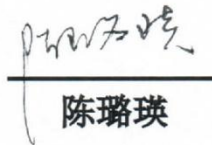 陈璐瑛
陈璐瑛